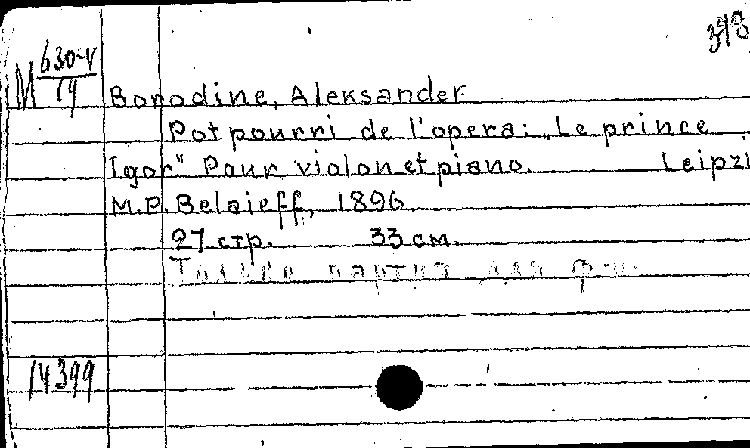 M 630-V
19
Borodine, Aleksander
Potpourri de l'opera: „Le prince
Igor" Pour violon et piano. Leipzi
M.P. Belaieff, 1896
27 стр. 33 см.
Только партия для ф-п.
14399